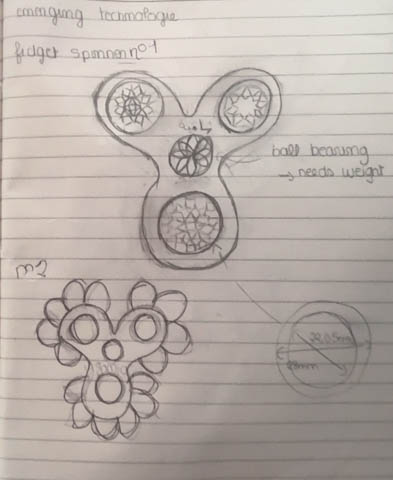 emerging technologie
fidget spinner n°1
ball bearing
→ needs weight
n2